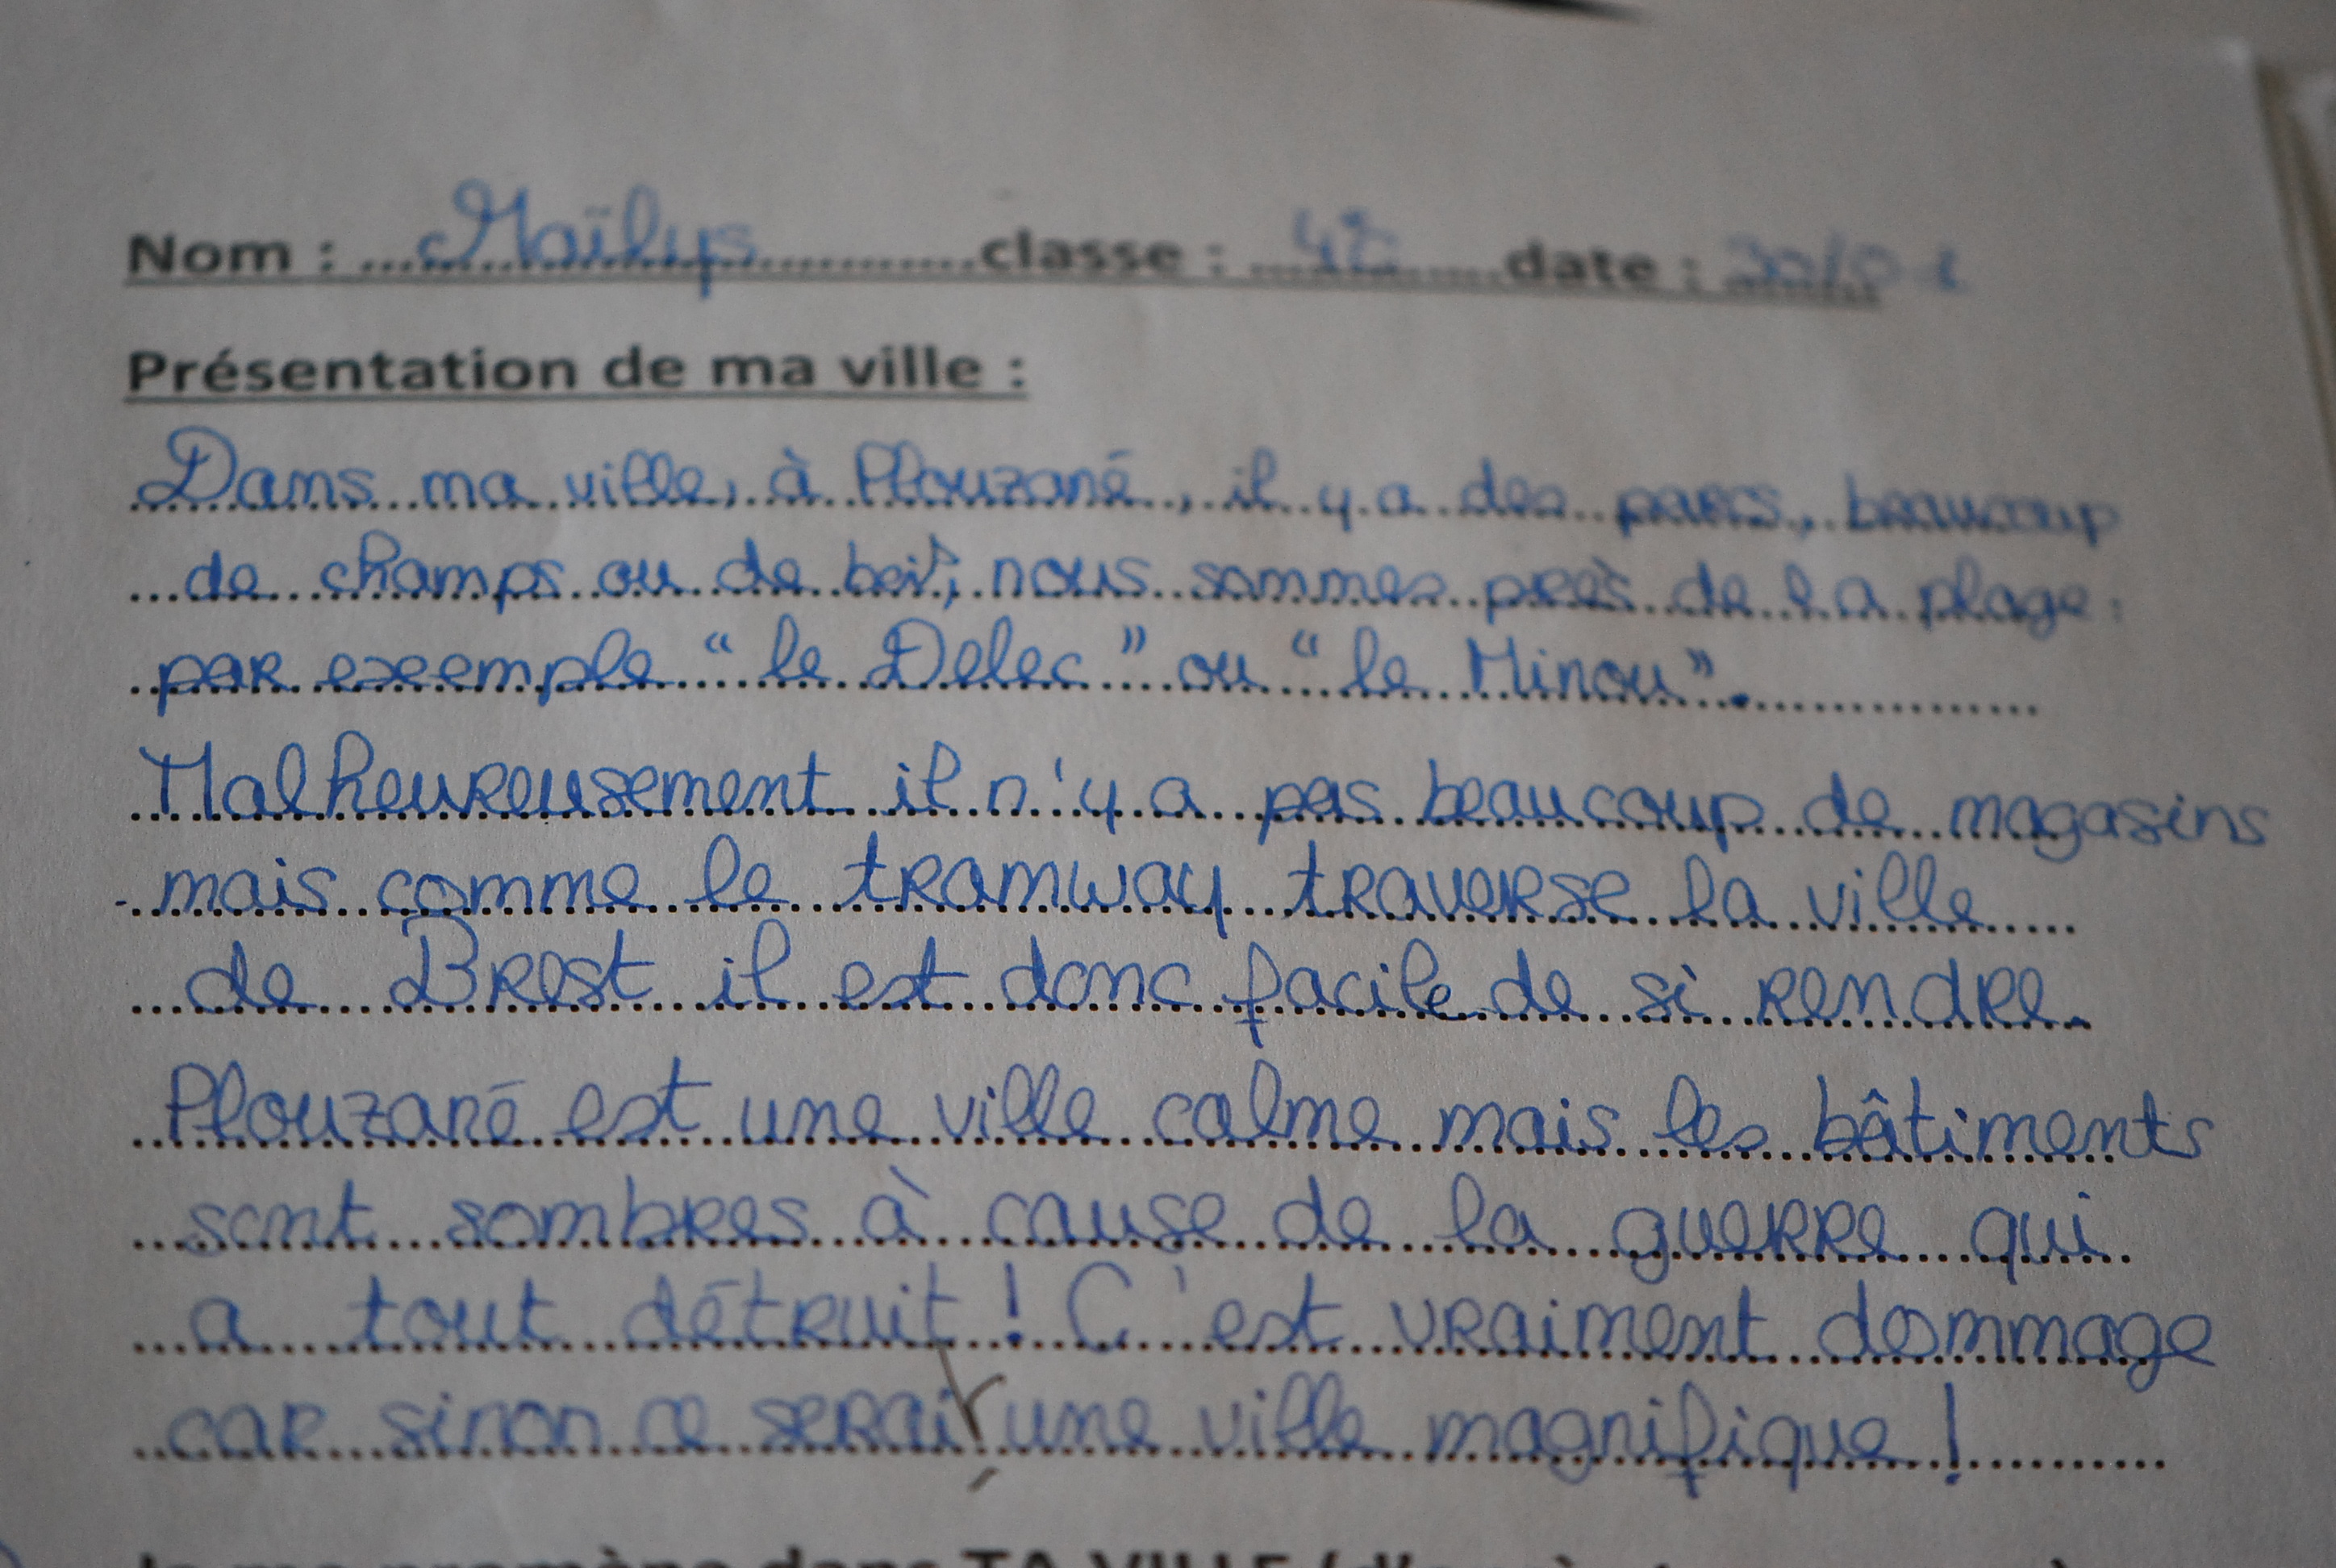 Nom : Maïlys classe : 4e date : 30/01
Présentation de ma ville :
Dans ma ville, à Plouzané, il y a des parcs, beaucoup
de champs ou de bois, nous sommes près de la plage :
par exemple “le Delec” ou “le Minou”.
Malheureusement il n'y a pas beaucoup de magasins
mais comme le tramway traverse la ville
de Brest il est donc facile de si rendre.
Plouzané est une ville calme mais les bâtiments
sont sombres à cause de la guerre qui
a tout détruit ! C'est vraiment dommage
car sinon ce serai une ville magnifique !
TA VILLE